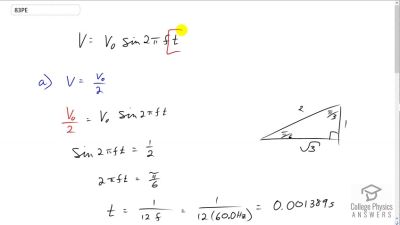 83PE
V = V₀ sin 2π f t
a) V = V₀/2
V₀/2 = V₀ sin 2π f t
sin 2π f t = 1/2
2π f t = π/6
t = 1/(12 f) = 1/(12 (60.0Hz)) = 0.001389 s
2
π/3
1
π/6
√3
College Physics
ANSWERS